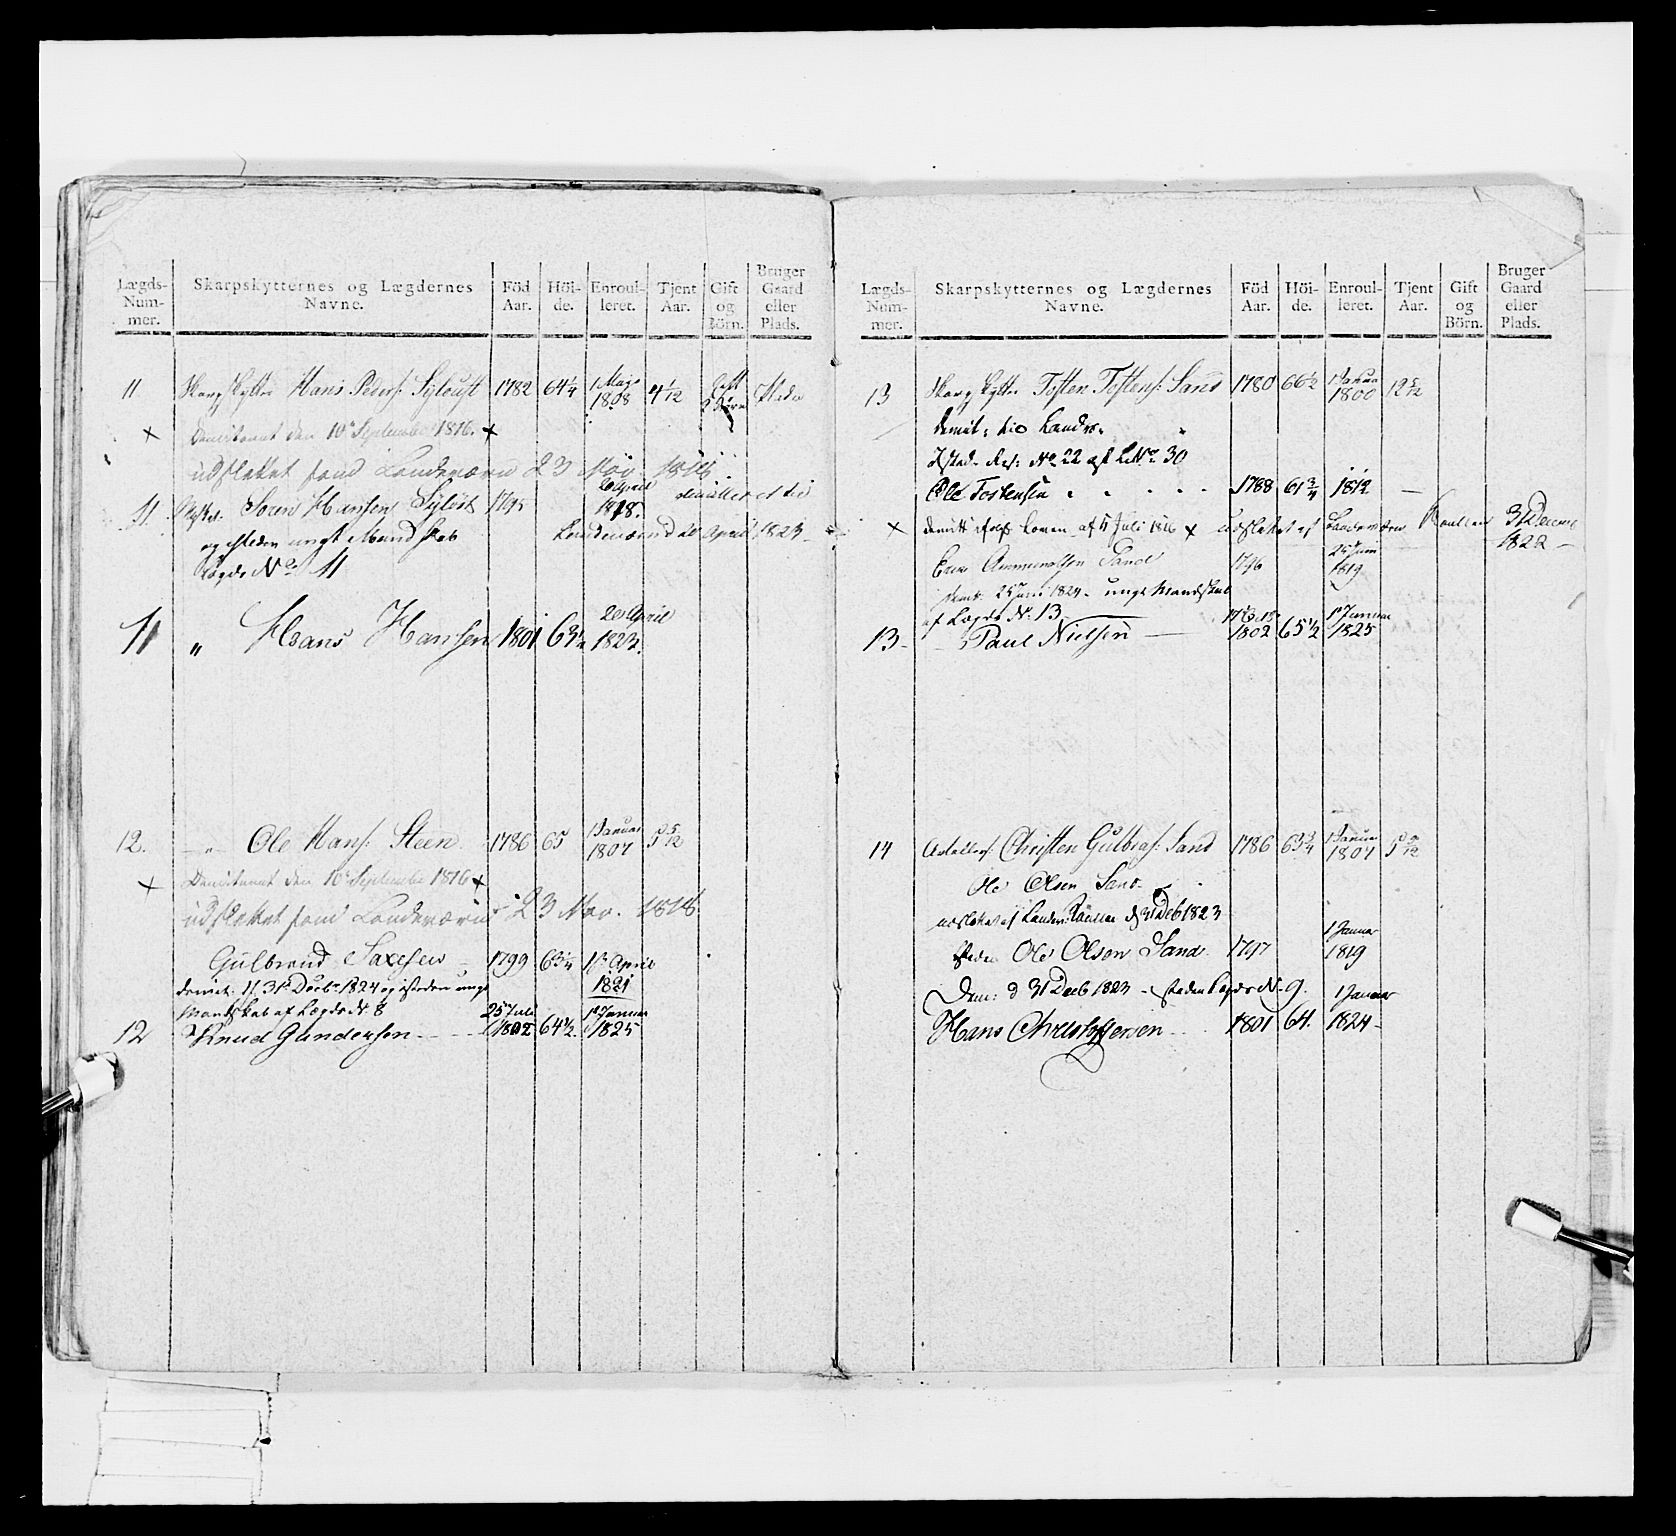 Lægds-Num-mer. Skarpskytternes og Lægdernes Navne. Föd Aar. Höi-de. Enroul-leret. Tjent Aar. Gift og Börn. Bruger Gaard eller Plads.
11 Skarpskytte Hans Peders: 1782 64 1/4 1 Maji 1808 4 1/12 Gift 2 Börn
Demiteret den 10de September 1816.
udslettet fend Landeværn 23 Nov. 1818
11. Sören Hansen 1795 20 April 1818.
og isteden ungt Mandskab Landeværn d 20 April 1823
Lægds No 11
11 „ Hans Hansen 1801 63 1/2 20 April 1823.
12. „ Ole Hans: Steen 1786 65 1 Januar 1807 5 5/12
Demiteret den 10de September 1816
udslettet fend Landeværn 23 Nov. 1818
Gulbrand Saxesen 1799 63 1/4 April 1821
demit: 31 Decbr 1824 og isteden ungt
Mandskab af Lægds No 8
12 Knud Gundersen 25 Juli 1802 64 1/2 1 Januar 1825
Lægds-Num-mer. Skarpskytternes og Lægdernes Navne. Föd Aar. Höi-de. Enroul-leret. Tjent Aar. Gift og Börn. Bruger Gaard eller Plads.
13 Skarpskytte Tosten Tostens: Sand 1780 66 1/2 1 Januar 1800 12 5/12
demit: til Landev.
Isted. No 22 af L.No 30
Ole Tostensen 1788 61 3/4 1812
demitt ifølge Loven af 5 Juli 1816 udslettet af Landeværns Roullen 31 Decemb 1822
Sand 1796 25 Juni 1819
demt. 25 Juni 1824 - ungt Mandskab
af Lægds No 13
13 - Paul Nielsen 1802 65 1/2 1 Januar 1825
14 Christen Gulbras: Sand 1786 63 3/4 1 Januar 1807 5 5/12
Ole Olsen Sand
udslettet af Landev: Roullen d 31 Deb 1823
Ole Olsen Sand 1797 1 Januar 1819
Dem: d 31 Decb 1823 - isteden Lægds No 9.
Hans Christophersen 1801 64. 1 Januar 1824